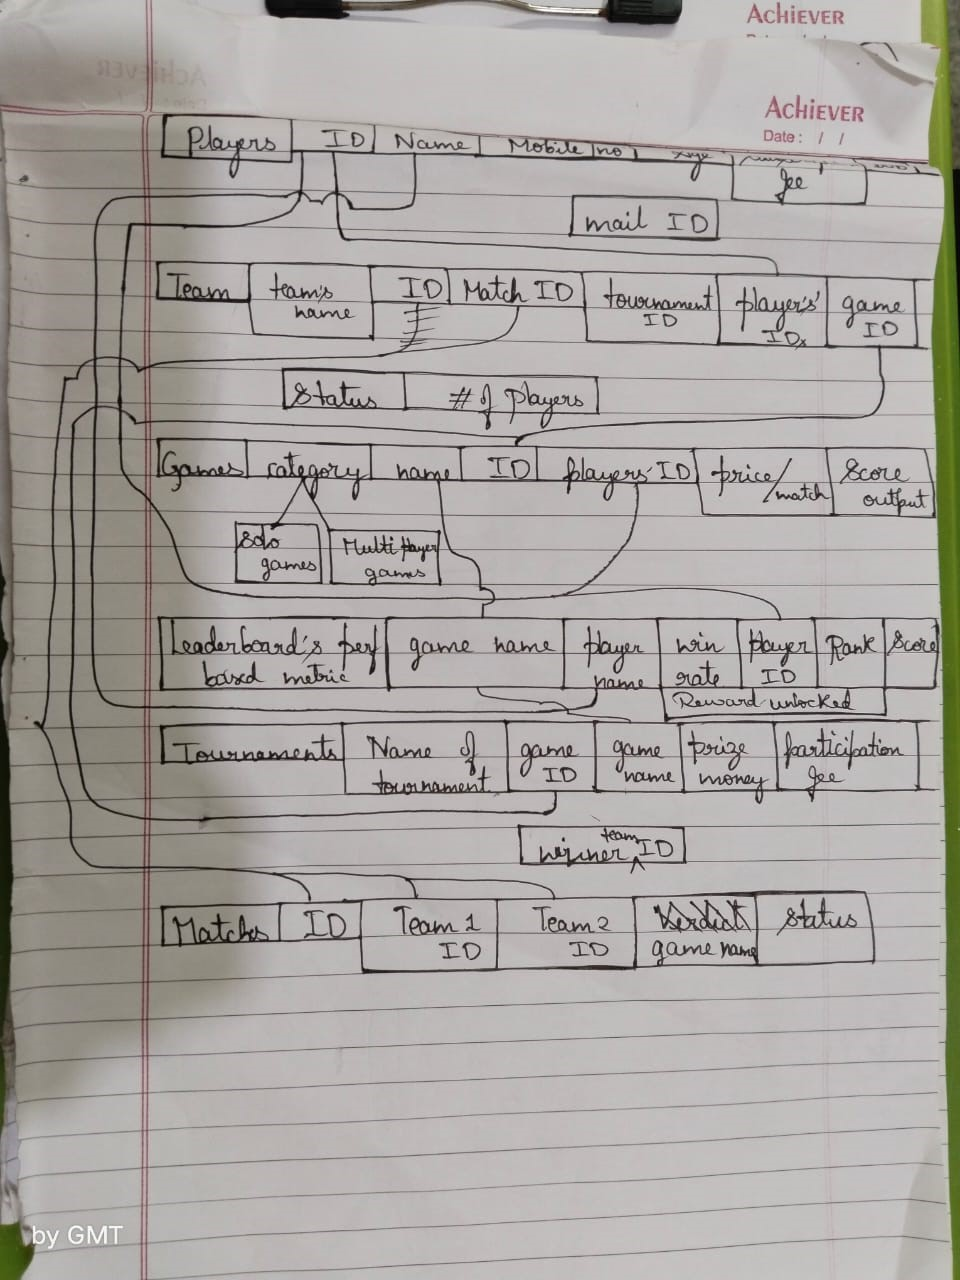 ACHIEVER
ACHIEVER
Date: / /
Players ID Name Mobile no
fee
mail ID
Team team's name ID Match ID tournament ID players' IDs game ID
Status # of players
Games category name ID players' ID price/match Score output
Solo games Multiplayer games
Leaderboard's perf based metric game name player name win rate player ID Rank Score
Reward unlocked
Tournaments Name of tournament game ID game name prize money participation fee
winner team ID
Matches ID Team 1 ID Team 2 ID game name Status
by GMT